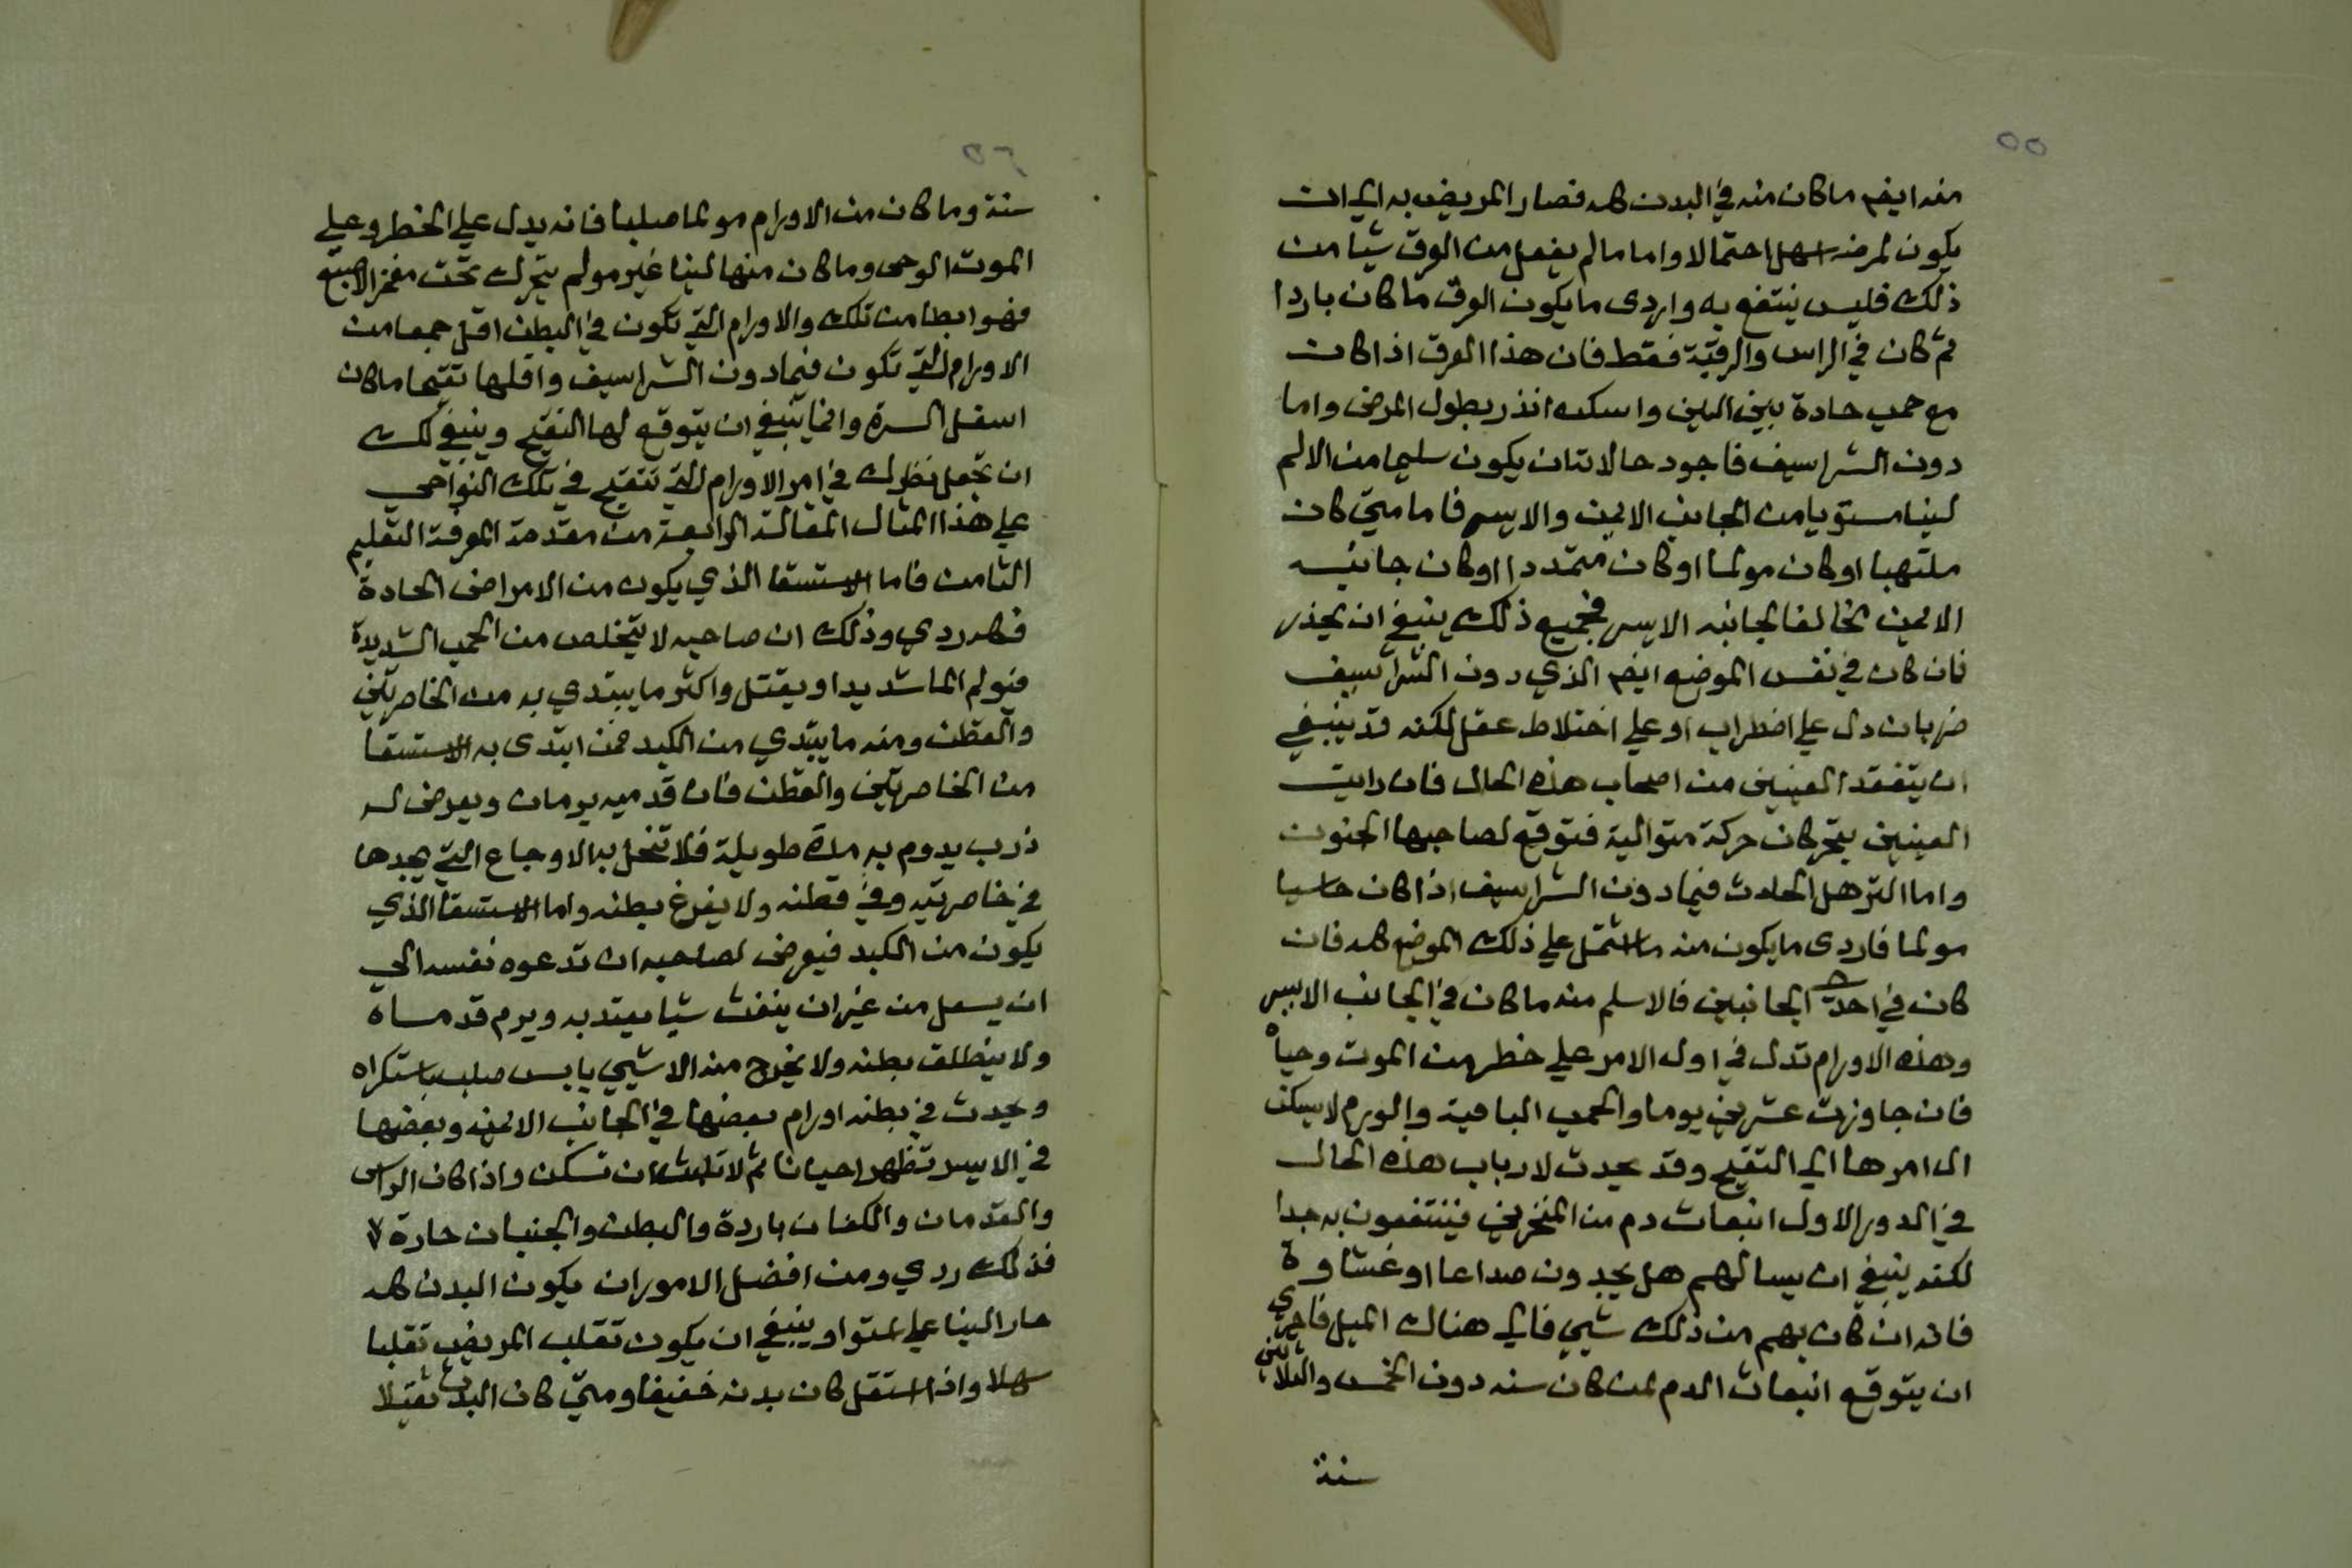 ٥٥
منه ايضم ماكان منه في البدن كله فصار المريض به الي ان
يكون لمرضه اسهل احتمالا واما مالم يفعل من العرق شيا من
ذلك فليس ينتفع به واردى مايكون العرق ماكان باردا
ثم كان في الراس والرقبة فقط فان هذا العرق اذا كان
مع حمى حادة بين اللين واسكنه انذر بطول المرض واما
دون الشراسيف فاجود حالاته ان يكون سليما من الالم
لينا مستويا من الجانب الايمن والايسر فاما متي كان
ملتهبا او كان مولما او كان متمددا او كان جانبه
الايمن مخالفا لجانبه الايسر فجميع ذلك ينبغي ان يحذر
فان كان في نفس الموضع ايضم الذي دون الشراسيف
ضربان دل علي اضطراب او علي اختلاط عقل لكنه قد ينبغي
ان يتفقد العينين من اصحاب هذه الحال فان رايت
العينين يتحركان حركة متوالية فتوقع لصاحبها الجنون
واما الترهل الحادث فيما دون الشراسيف اذا كان حاسيا
مولما فاردى مايكون منه ما اشتمل علي ذلك الموضع كله فان
كان في احد الجانبين فالاسلم منه ماكان في الجانب الايسر
وهذه الاورام تدل في اول الامر علي خطر من الموت وحياه
فان جاوزت عشرين يوما والحمى الباقية والورم لا يسكن
ال امرها الي التقيح وقد يحدث لارباب هذه الحال
في الدور الاول انبعاث دم من المنخرين فينتفعون به جدا
لكنه ينبغي ان يسالهم هل يجدون صداعا او غشاوة
فانه ان كان بهم من ذلك شيي فالي هناك الميل فاحرى
ان يتوقع انبعاث الدم لمن كان سنه دون الخمس والثلاثين
سنة
٥٦
سنة وماكان من الاورام مولما صلبا فانه يدل علي الخطر وعلي
الموت الوحى وماكان منها لينا غير مولم يتحرك تحت مغمز الاصبع
فهو ابطا من تلك والاورام التي تكون في البطن اقل جمعا من
الاورام التي تكون فيما دون الشراسيف واقلها تقيحا ماكان
اسفل السرة وانما ينبغي ان يتوقع لها التقيح وينبغي لك
ان تجعل نظرك في امر الاورام التي تتقيح في تلك النواحي
علي هذا المثال المقالة الرابعة من مقدمة المعرفة التعليم
الثامن فاما الاستسقا الذي يكون من الامراض الحادة
فكله ردي وذلك ان صاحبه لا يتخلص من الحمى الشديدة
فيولم الما شديدا ويقتل واكثر ما يبتدي به من الخاصرتين
والقطن ومنه ما يبتدي من الكبد فمن ابتدى به الاستسقا
من الخاصرتين والقطن فان قدميه يرمان ويعرض له
ذرب يدوم به مدة طويلة فلا تنحل به الاوجاع التي يجدها
في خاصرتيه وفي قطنه ولا يفرغ بطنه واما الاستسقا الذي
يكون من الكبد فيعرض لصاحبه ان تدعوه نفسه الي
ان يسعل من غير ان ينفث شيا يعتد به ويرم قدماه
ولا ينطلق بطنه ولا يخرج منه الا شيي يابس صلب باستكراه
ويحدث في بطنه اورام بعضها في الجانب الايمن وبعضها
في الايسر تظهر احيانا ثم لا تلبث ان تسكن واذا كان الراس
والقدمان والكفان باردة والبطن والجنبان حارة
فذلك ردي ومن افضل الامور ان يكون البدن كله
حارا لينا علي استوا وينبغي ان يكون تقلب المريض تقلبا
سهلا واذا استقل كان بدنه خفيفا ومتي كان البدن ثقيلا